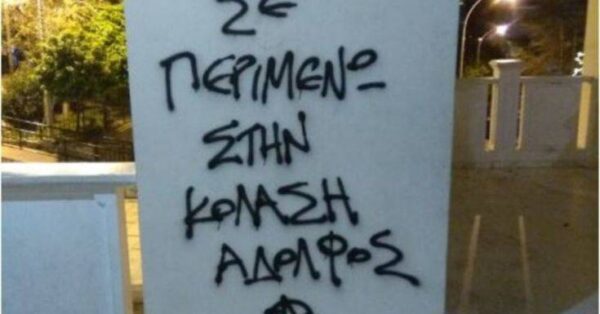 ΣΕ
ΠΕΡΙΜΕΝΩ
ΣΤΗΝ
ΚΟΛΑΣΗ
ΑΔΟΛΦΟΣ